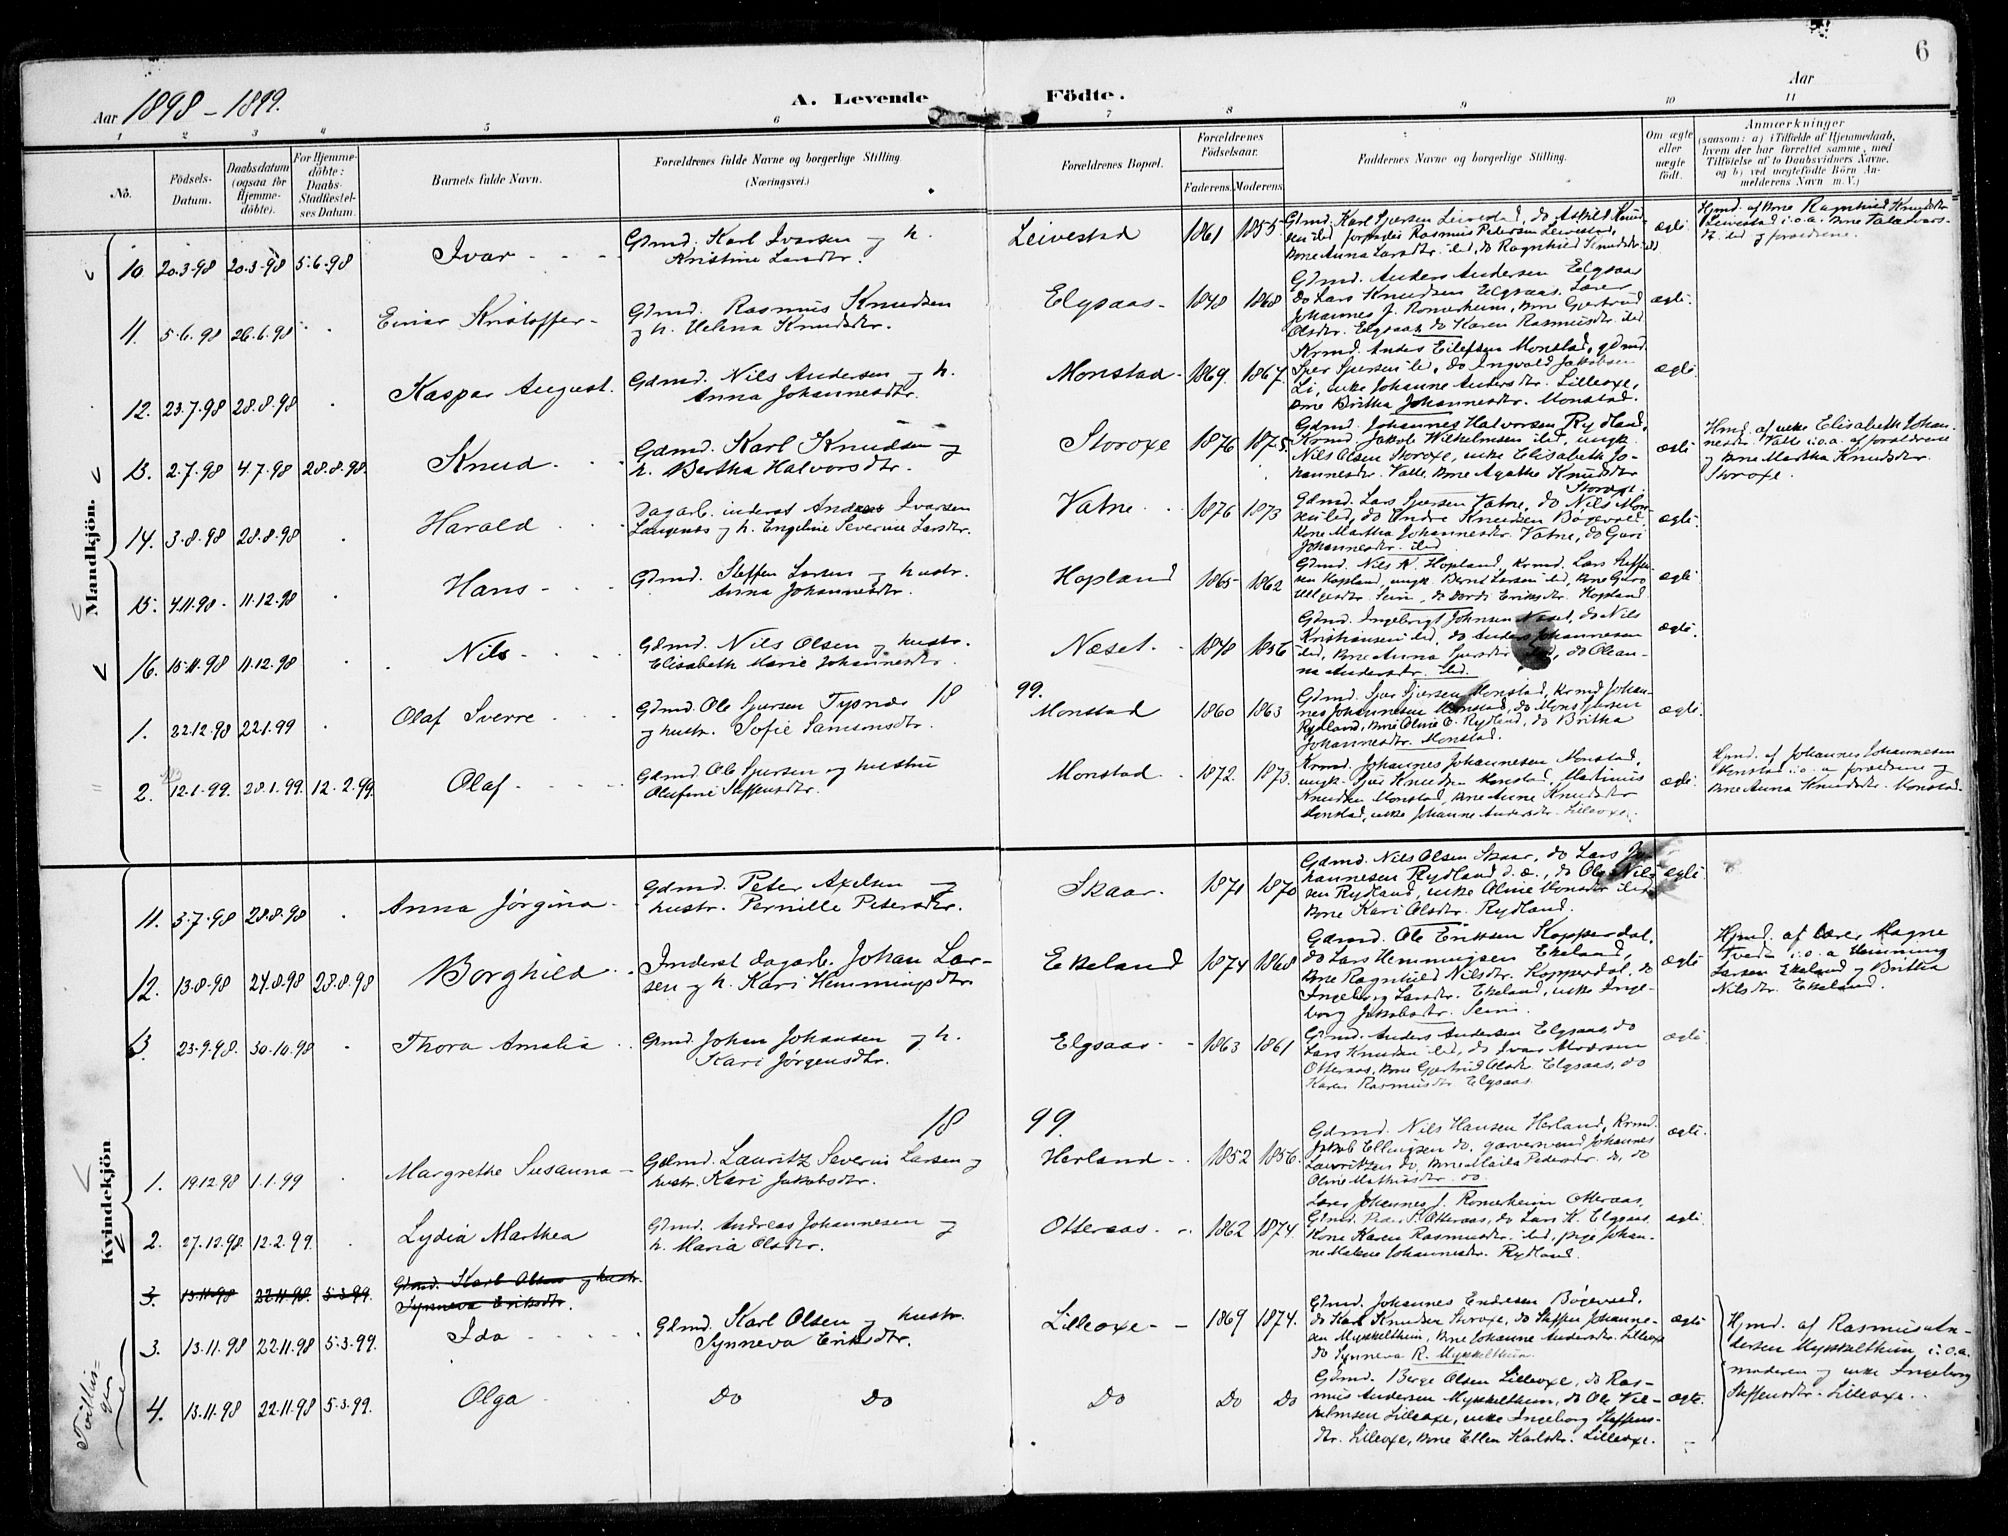 6
Aar 1898 - 1899.
A. Levende Födte.
Aar
1 2 3 4 5 6 7 8 9 10 11
No.
Födsels-Datum.
Daabsdatum (ogsaa for Hjemmedöbte).
For Hjemmedöbte: Daabs-Stadfæstelses Datum.
Barnets fulde Navn.
Forældrenes fulde Navne og borgerlige Stilling (Næringsvei.)
Forældrenes Bopæl.
Forældrenes Födselsaar.
Faderens. Moderens.
Faddernes Navne og borgerlige Stilling.
Om ægte eller uægte födt.
Anmærkninger
(saasom: a) i Tilfælde af Hjemmedaab, hvem der har forrettet samme, med Tilföielse af to Daabsvidners Navne, og b) ved uægtefödte Börn Anmelderens Navn m. V.)
Mandkjön.
10. 20.3.98 20.3.98 5.6.98 Ivar Gdmd. Karl Ivarsen og h. Kristine Larsdtr. Leivestad 1861 1855 ægte
11. 5.6.98 26.6.98 Einar Kristoffer Gdmd. Rasmus Knudsen og h. Helena Knudsdtr. Elgsaas 1848 1868 Gdmd. Anders Andersen Elgsaas do Lars Knudsen Elgsaas. Lærer Johannes J. Romerheim, Kone Gjertrud Olsdtr. Elgsaas, do Karen Rasmusdtr. ibd ægte
12. 23.7.98 28.8.98 Kaspar August Gdmd. Nils Andersen og h. Anna Johannesdtr. Monstad 1869 1867 Krmd. Anders Eilefsen Monstad, gdmd. Sjur Sjursen ibd, do Ingvald Jakobsen Li, enke Johanne Andersdtr. Lilleoxe, Kone Britha Johannesdtr. Monstad. ægte
13. 2.7.98 4.7.98 28.8.98 Knud Gdmd. Karl Knudsen og h. Bertha Halvorsdtr. Storoxe 1876 1875 Gdmd. Johannes Halvorsen Rydland, Krmd. Jakob Wilhelmsen ibd, ungk. Nils Olsen Storoxe, enke Elisabeth Johannesdtr. Valle, Kone Agathe Knudsdtr Storoxe. ægte Hjmd. af enke Elisabeth Johannesdtr. Valle i.o.a. af forældrene og Kone Martha Knudsdtr. Storoxe.
14. 3.8.98 28.8.98 Harald Dagarb. inderst Andreas Ivarsen og h. Engeline Severine Larsdtr. Vatne 1876 1873 Gdmd. Lars Sjursen Vatne, do Nils ibd, do Endre Knudsen Bøgevold, Kone Martha Johannesdtr. Vatne, do Guri Johannesdtr. ibd ægte
15. 4.11.98 11.12.98 Hans Gdmd. Steffen Larsen og hustr. Anna Johannesdtr. Hopland 1865 1862 Gdmd. Nils K. Hopland, Krmd. Lars Steffensen Hopland, ungk. Bernt Larsen ibd, Kone Guro Seim, do Dordi Eriksdtr. Hopland ægte
16. 15.11.98 11.12.98 Nils Gdmd. Nils Olsen og hustr. Elisabeth Marie Johannesdtr. Næset 1848 1856 Gdmd. Ingebrigt Johnsen Næset, do Nils Kristiansen ibd, do Anders Johannesen ibd, Kone Anna Sjursdtr. ibd, do Oleanna Andersdtr. ibd. ægte
18 99.
1. 22.12.98 22.1.99 Olaf Sverre Gdmd. Ole Sjursen Tysnæs og hustr. Sofie Samsonsdtr. Monstad 1860 1863 Gdmd. Sjur Sjursen Monstad, Krmd. Johannes Johannesen Monstad, do Mons Rydland, Kone Oline E. Rydland, do Britha Johannesdtr. Monstad. ægte
2. 12.1.99. 28.1.99. 12.2.99. Olaf Gdmd. Ole Sjursen og hustru Olufine Steffensdtr. Monstad 1872 1873 Krmd. Johannes Johannesen Monstad, ungk. Sjur Knudsen Monstad, Martinus Knudsen Monstad, Kone Anne Knudsdtr Monstad, enke Johanne Andersdtr. Lilleoxe. ægte Hjmd. af Johannes Johannesen Monstad i.o.a. forældrene og Kone Anna Knudsdtr. Monstad.
Kvindekjön
11. 3.7.98 28.8.98 Anna Jørgina Gdmd. Peter Axelsen og hustr. Pernille Petersdtr. Skaar 1871 1870 Gdmd. Nils Olsen Skaar, do Lars Johannesen Rydland d.æ., do Ole Nilssen Rydland, enke Oline Monsdtr ibd Kone Kari Olsdtr. Rydland. ægte
12. 13.8.98 24.8.98 28.8.98 Borghild Inderst dagarb. Johan Larsen og h. Kari Hemmingsdtr. Ekeland 1874 1868 Gdmd. Ole Eriksen Kopperdal, do Lars Hemmingsen Ekeland, Kone Ragnhild Nilsdtr. Kopperdal, do Ingeborg Larsdtr. Ekeland, enke Ingeborg Jakobsdtr. Seim. ægte Hjmd. af Lærer Magne Tveden i.o.a. Hemming Larsen Ekeland og Britha Nilsdtr. Ekeland.
13. 23.9.98. 30.10.98 Thora Amalia Gdmd. Johan Johansen og h. Kari Jørgensdtr. Elgsaas 1863 1861 Gdmd. Anders Andersen Elgsaas, do Lars Knudsen ibd, do Ivar Otteraas, Kone Gjertrud Olsdtr. Elgsaas, do Karen Rasmusdtr Elgsaas. ægte
18 99.
1. 19.12.98 1.1.99 Margrethe Susanna Gdmd. Lauritz Severin Larsen og hustr. Kari Jakobsdtr. Herland 1852 1856 Gdmd. Nils Hansen Herland, Krmd. Jakob Ellingsen do, garversvend Johannes Lauritzen do, Kone Pedersdtr. do, do Oline Mathiasdtr. do. ægte
2. 27.12.98 12.2.99. Lydia Marthea Gdmd. Andreas Johannesen og h. Maria Olsdtr. Otteraas 1862 1874 Lærer Johannes J. Romerheim Otteraas, Gdmd. Peder P. Otteraas, do Lars K. Elgsaas, Kone Karen Rasmusdtr. ibd, pige Johanne Malene Johannesdtr. Rydland. ægte
3. 13.11.98 22.11.98. 5.3.99. Gdmd. Karl Olsen og hustr. Synneva Eriksdtr.
3. 13.11.98 22.11.98 5.3.99. Ida Gdmd. Karl Olsen og hustr. Synneva Eriksdtr. Lilleoxe 1869 1874 Gdmd. Johannes Endresen Bøgevold, do Karl Knudsen Storoxe, do Steffen Johannesen Mykkeltheim, Kone Johanne Andersdtr. Lilleoxe do Synneva R. Mykkeltheim. ægte
4. 13.11.98 22.11.98 5.3.99. Olga Do Do Do Do Do Gdmd. Berge Olsen Lilleoxe, do Rasmus Andersen Mykkeltheim, do Ole Vilhelmsen Lilleoxe, enke Ingeborg Steffensdtr. Lilleoxe, Kone Ellen Karlsdtr. Lilleoxe. ægte.
Hjmd. af Rasmus Andersen Mykkeltheim i.o.a. moderen og enke Ingeborg Steffensdtr. Lilleoxe.
Tvillinger